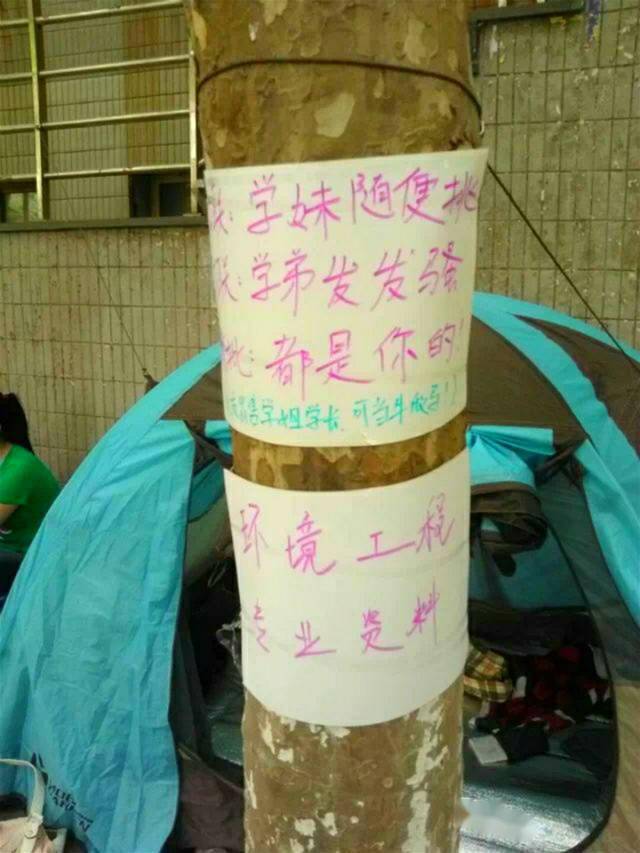 联：学妹随便挑
联：学弟发发骚
批：都是你的！
售学姐学长，可当牛做马！）
环境工程
专业资料